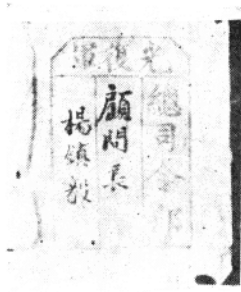 光復軍
總司令部
顧問長
楊鎮毅